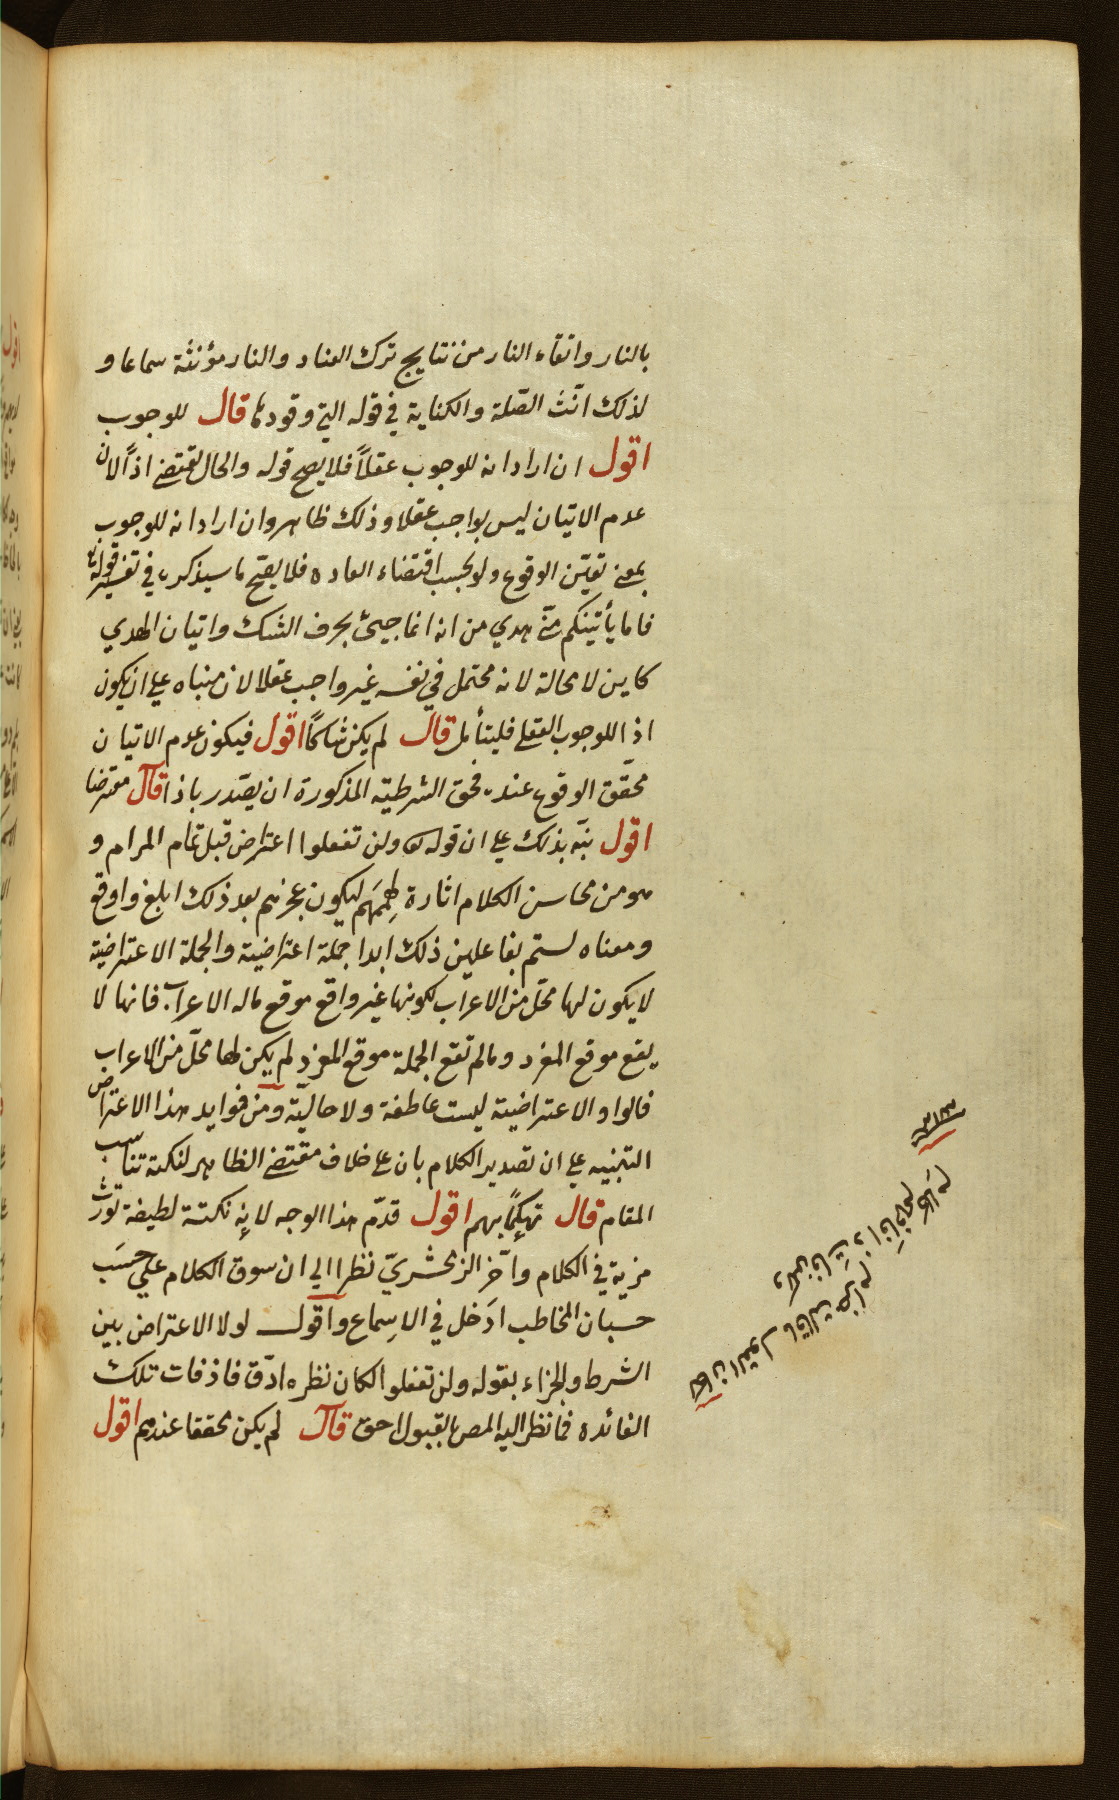 بالنار واتقاء النار من نتايج ترك العناد والنار مؤنثة سماعا و
لذلك انّث الصّلة والكناية في قوله التي وقودها قال للوجوب
اقول ان اراد انه للوجوب عقلاً فلا يصح قوله والحال يقتضي اذاً لان
عدم الاتيان ليس بواجب عقلا وذلك ظاهر وان اراد انه للوجوب
بمعنى تعيّن الوقوع ولو بحسب اقتضاء العاده فلا يصّح ما سيذكره في تفسير قوله تع
فاما يأتينكم منّي هدي من انه انما جيئ بحرف الشك واتيان الهدي
كاين لا محالة لانه محتمل في نفسه غير واجب عقلا لان مبناه علي ان يكون
اذا للوجوب العقلي فليتأمل قال لم يكن شاكاً اقول فيكون عدم الاتيان
محقّق الوقوع عنده فحق الشرطيّة المذكورة ان يصّدر باذا قال معترضا
اقول نبّه بذلك علي ان قوله ولن تفعلوا اعتراض قبل تمام المرام و
هو من محاسن الكلام اثارة لهممهم ليكون عجزهم بعد ذلك ابلغ واوقع
ومعناه لستم بفاعلين ذلك ابدا جملة اعتراضية والجملة الاعتراضية
لا يكون لها محلّ من الاعراب لكونها غير واقع موقع ماله الاعراب فانها لا
يقع موقع المفرد ومالم تقع الجملة موقع المفرد لم يكن لها محلّ من الاعراب
فالواو الاعتراضية ليست عاطفة ولا حاليّة ومن فوايد هذا الاعتراض
التنبيه علي ان تصدير الكلام بان علي خلاف مقتضي الظاهر لنكتة تناسب
المقام قال تهكمّاً بهم اقول قدّم هذا الوجه لانه نكتة لطيفة تورث
مزية في الكلام واخّر الزمخشريّ نظرا الي ان سوق الكلام علي حسَب
حسبان المخاطب ادَخل في الاسماع واقول لولا الاعتراض بين
الشرط والجزاء بقوله ولن تفعلوا لكان نظره ادّق فاذ فات تلك
الفائده فما نظر اليه المص بالقبول احق قال لم يكن محققا عندهم اقول